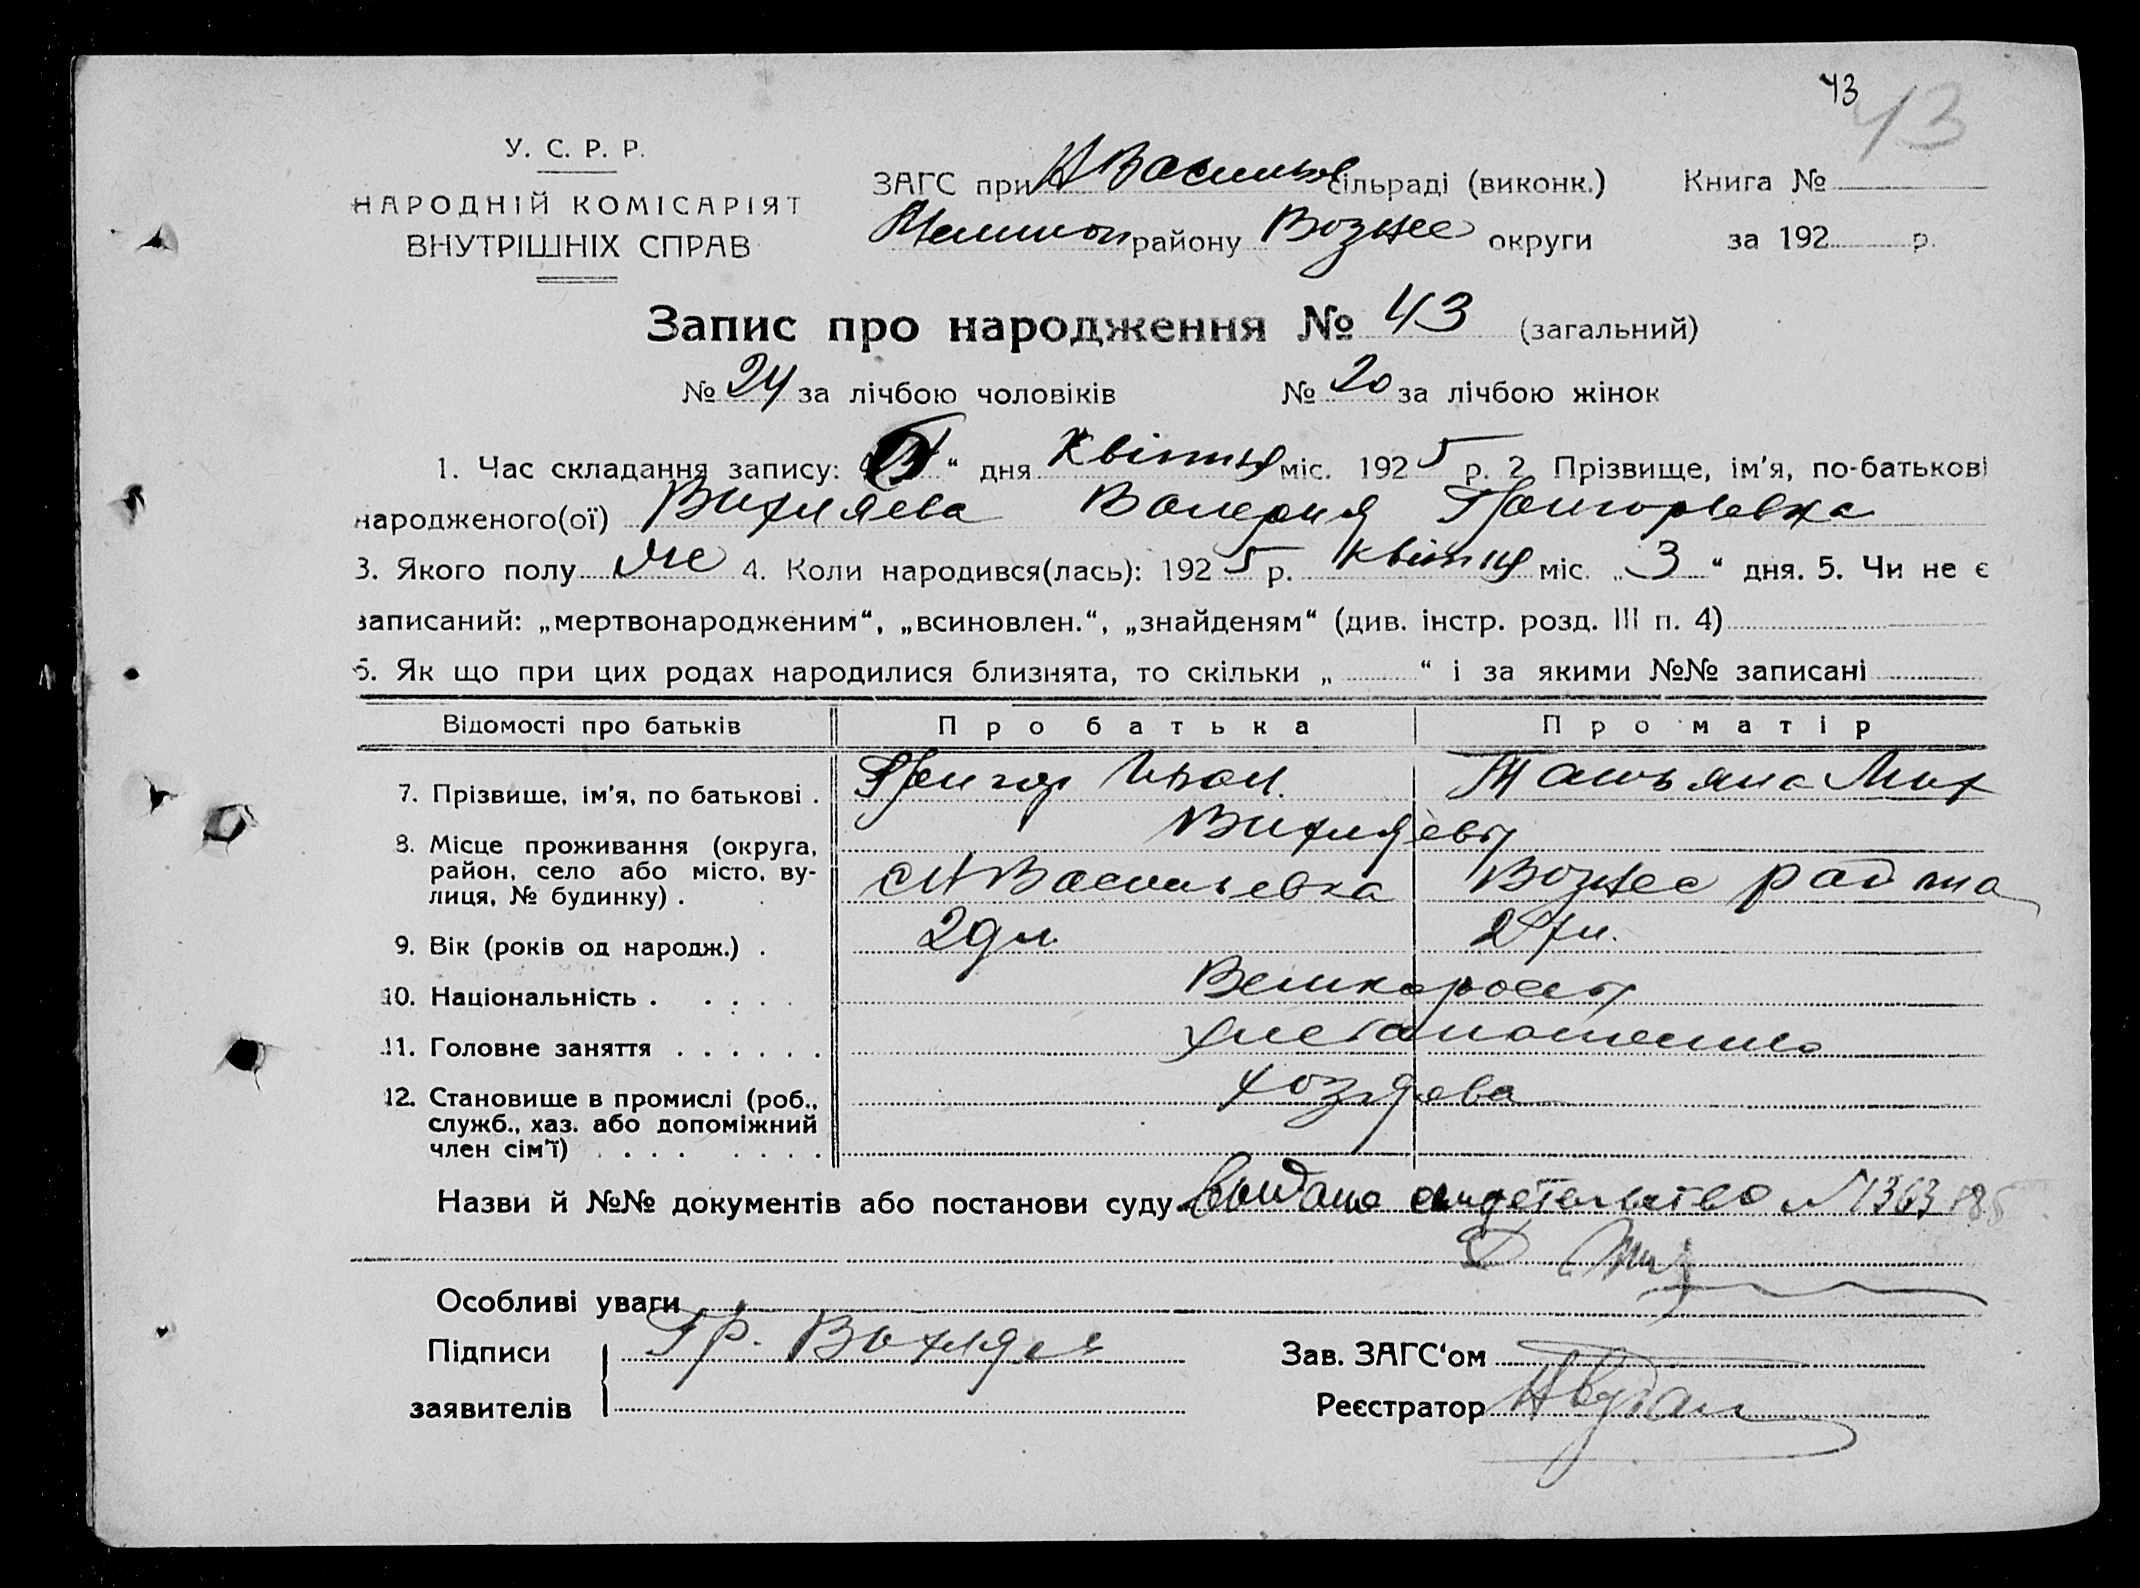 43
43
У. С. Р. Р.
НАРОДНІЙ КОМІСАРІЯТ
ВНУТРІШНІХ СПРАВ
ЗАГС при Н Васильев сільраді (виконк.) Книга №
району Вознес округи за 192 р.
Запис про народження № 43 (загальний)
№ 24 за лічбою чоловіків № 20 за лічбою жінок
1. Час складання запису: " дня Квітня міс. 1925 р. 2. Прізвище, ім'я, по-батькові
народженого(ої) Вихляева Валерия Григорьевна
3. Якого полу 4. Коли народився(лась): 1925 р. Квітня міс. „3" дня. 5. Чи не є
записаний: „мертвонародженим", „всиновлен.", „знайденям" (див. інстр. розд. III п. 4)
6. Як що при цих родах народилися близнята, то скільки „ " і за якими №№ записані
Відомості про батьків Про батька Про матір
7. Прізвище, ім'я, по батькові . Григор Иван. Татьяна Мих
Вихляевы
8. Місце проживання (округа,
район, село або місто, ву-
лиця, № будинку) . Н Васильевка Вознес района
9. Вік (років од народж.) . 29 л. 27 л.
10. Національність . . . . . Великоросы
11. Головне заняття . . . . . . хлебопашество
12. Становище в промислі (роб.,
служб., хаз. або допоміжний
член сім'ї) . . . . . . . . хозяева
Назви й №№ документів або постанови суду выдано свидетельство № 1363185
Особливі уваги
Підписи Гр. Вихляев Зав. ЗАГС'ом
заявителів Реєстратор